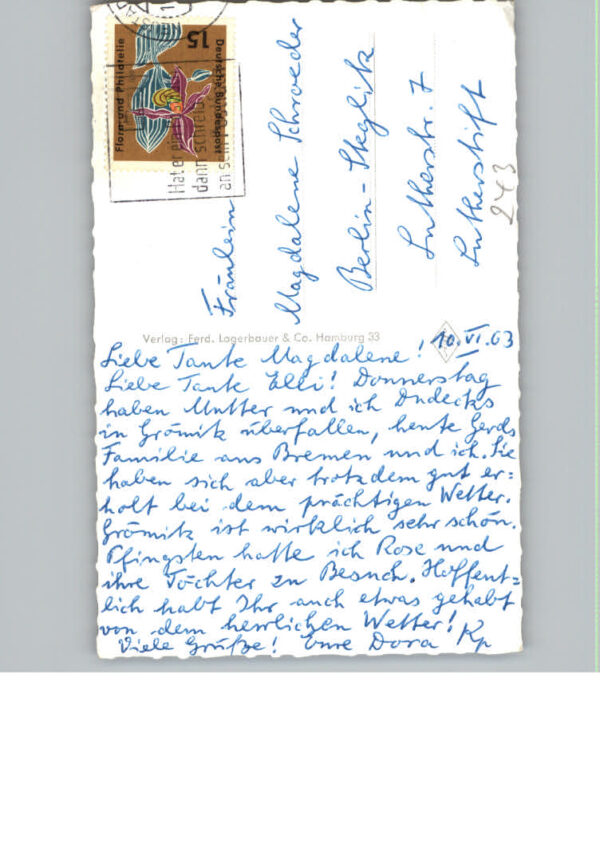 Deutsche Bundespost
15
Flora und Philatelie
Hat er ein
dann schreib
an sein Post
Fräulein
Magdalene Schroeder
Berlin-Steglitz
Lutherstr. 7
Lutherstift
243
Verlag: Ferd. Lagerbauer & Co. Hamburg 33
10.VI.63
Liebe Tante Magdalene!
Liebe Tante Elli! Donnerstag
haben Mutter und ich Dudecks
in Grömitz überfallen, heute Gerds
Familie aus Bremen und ich. Sie
haben sich aber trotzdem gut er=
holt bei dem prächtigen Wetter.
Grömitz ist wirklich sehr schön.
Pfingsten hatte ich Rose und
ihre Töchter zu Besuch. Hoffent=
lich habt Ihr auch etwas gehabt
von dem herrlichen Wetter!
Viele Grüße! Eure Dora Kp